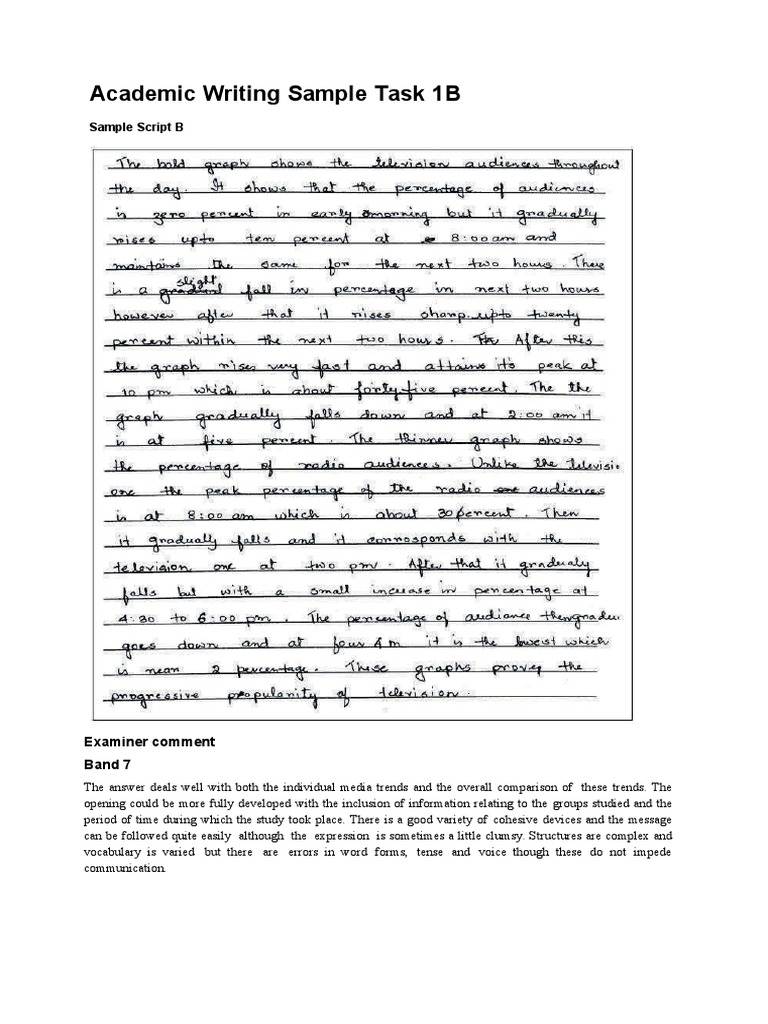 Academic Writing Sample Task 1B
Sample Script B
The bold graph shows the television audiences throughout
the day. It shows that the percentage of audiences
is zero percent in early morning but it gradually
rises upto ten percent at 8:00 am and
maintains the same for the next two hours. There
is a slight fall in percentage in next two hours
however after that it rises sharp upto twenty
percent within the next two hours. After this
the graph rises very fast and attains its peak at
10 pm which is about forty five percent. The the
graph gradually falls down and at 2:00 am it
is at five percent. The thinner graph shows
the percentage of radio audiences. Unlike the televisi
one the peak percentage of the radio audiences
is at 8:00 am which is about 30 percent. Then
it gradually falls and it corrosponds with the
television one at two pm. After that it gradualy
falls but with a small increase in percentage at
4:30 to 6:00 pm. The percentage of audiance then gradu
goes down and at four Am it is the lowest which
is near 2 percentage. These graphs proves the
progressive popularity of television.
Examiner comment
Band 7
The answer deals well with both the individual media trends and the overall comparison of these trends. The
opening could be more fully developed with the inclusion of information relating to the groups studied and the
period of time during which the study took place. There is a good variety of cohesive devices and the message
can be followed quite easily although the expression is sometimes a little clumsy. Structures are complex and
vocabulary is varied but there are errors in word forms, tense and voice though these do not impede
communication.